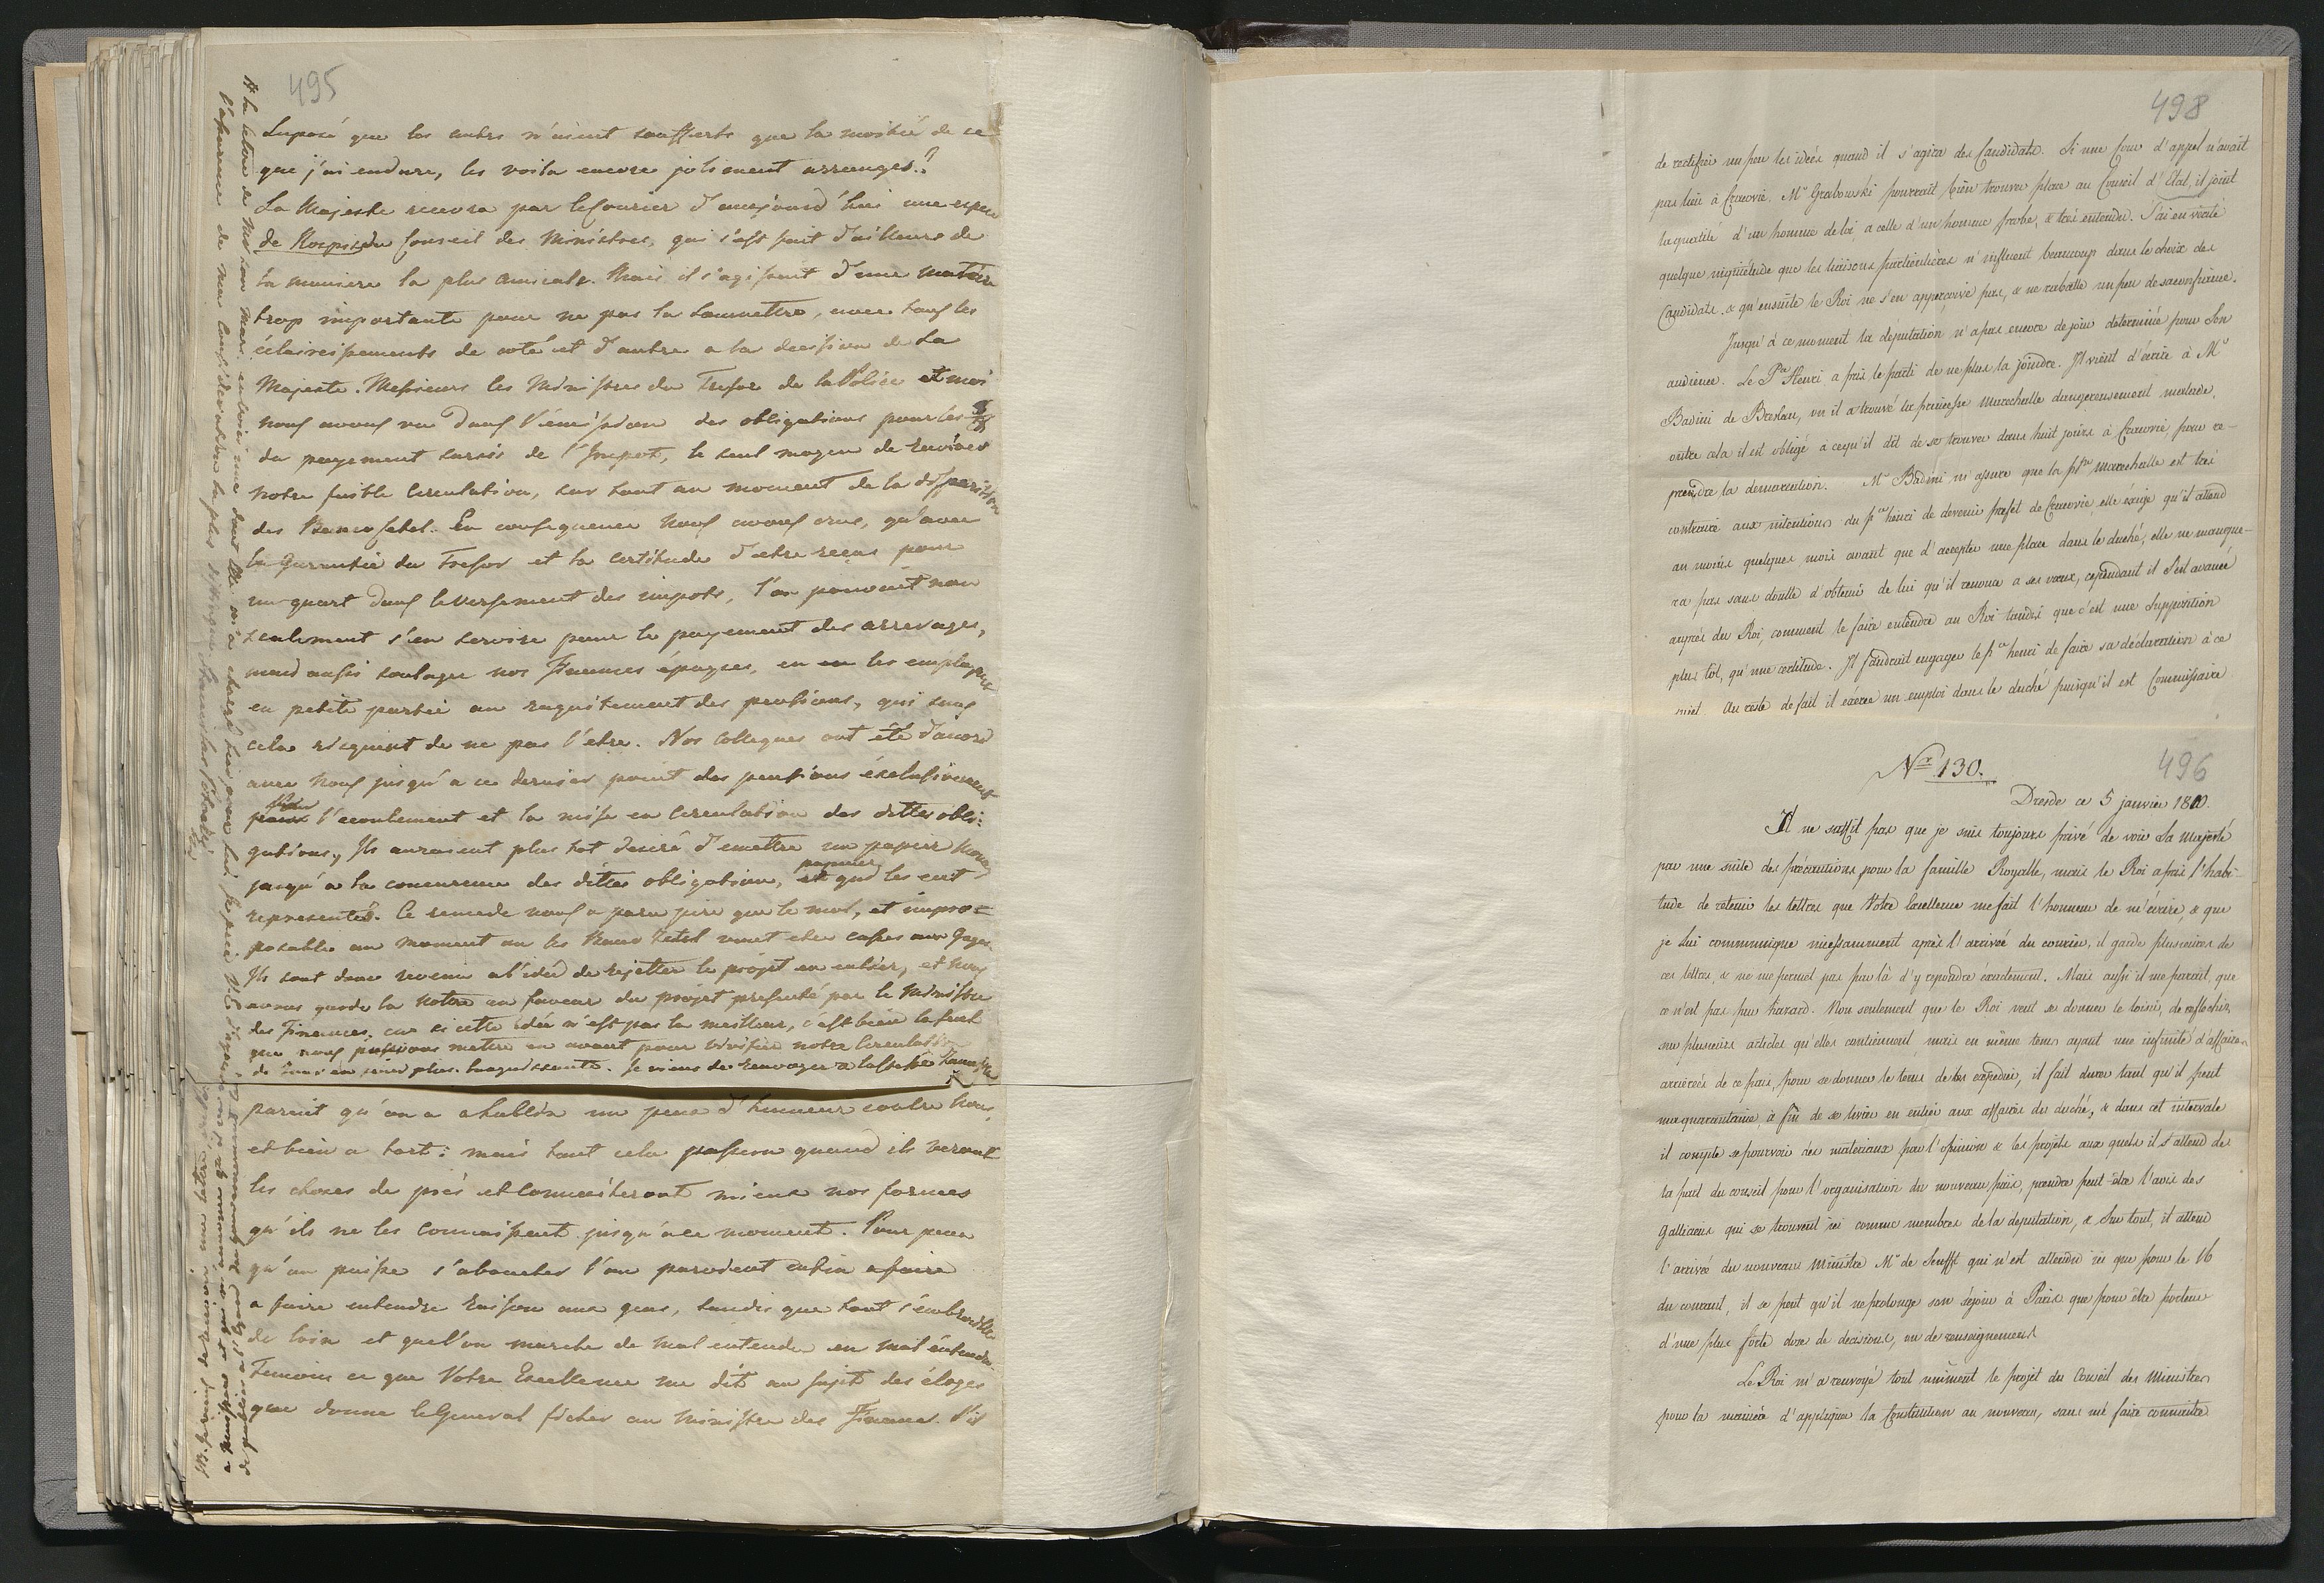 495
Supposé que les autres n'aient soufferts que la moitié de ce
que j'ai enduré, les voila encore joliment arrangés?
Sa Majesté recevra par le Courier d'aujourd'hui une espece
de Rospis du Conseil des Ministres, qui s'est fait d'ailleurs de
la maniere la plus amicale. Mais il s'agissait d'une matiere
trop importante pour ne pas la soumettre, avec tous les
éclaircissements de coté et d'autre a la decision de Sa
Majesté. Messieurs les Ministres du Tresor de la Police et moi
nous avons vu dans l'émission des obligations pour les
du payement sursis de l'Impot, le seul moyen de
notre faible circulation, sur tout au moment de la disparition
des Bancozetel. En consequence nous avons crus, qu'avec
la garantie du Tresor et la certitude d'etre reçus pour
un quart dans le versement des impots, l'on pouvait non
seulement s'en servire pour le payement des arrerages,
maid aussi soulager nos Finances épuisées, en les employant
en petite partie au acquitement des pensions, qui sans
cela risquent de ne pas l'etre. Nos Collegues ont été d'accord
avec nous jusqu'a ce dernier point des pensions exclusivement
pour l'ecoulement et la mise en circulation des dittes obli-
gations, Ils auraient plus tot desiré d'emettre un papier
jusqu'a la concurence des dittes obligations, papier qui les eut
representés. Ce remede nous a paru pire que le mal, et impro=
posable au moment ou les Banco Zetel vont etre
Ils sont donc revenu a l'idée de rejetter le projet en entier, et nous
avons gardé la notre en faveur du projet presenté par le Ministre
des Finances, car si cette idée n'est pas la meilleure, c'est bien la seul
que nous puissions mettre en avant pour vivifier notre circulation
de jour en jour plus languissante. Je viens de renvoyer a
parait qu'on a établis un peu d'humeur contre nous,
et bien a tort: mais tout cela passera quand ils verront
les choses de près et connaiteront mieux nos formes
qu'ils ne les connaissent jusqu'a ce moment. Pour peu
qu'on puisse s'aboucher l'on parvient enfin a faire
a faire entendre raison aux gens, tandis que tout s'embrouille
de loin et que l'on marche de mal entendu en mal entendu
Temoin ce que Votre Excellence me dit au sujet des éloges
que donne le General ficher au Ministre des Finances. S'il
498
de rectifier un peu les idées quand il s'agira des Candidats. Si une Cour d'appel n'avait
pas lieu à Cracovie. Mr Grabowski pourrait bien trouver place au Conseil d'Etat, il joint
la qualité d'un homme de loi, a celle d'un homme probe, & très entendu. J'ai en verité
quelque inquiétude que les liaisons particulières n'influent beaucoup dans le choix des
Candidats, & qu'ensuite le Roi ne s'en apperçoive pas, & ne rabatte un peu de sa confiance.
Jusqu'à ce moment la députation n'a pas encore de jour determiné pour Son
audience. Le Pce Henri a pris le parti de ne plus la joindre. Il vient d'écrire à Mr
Badini de Breslau, ou il a trouvé la princesse Marechalle dangereusement malade,
outre cela il est obligé à ce qu'il dit de se trouver dans huit jours à Cracovie, pour re-
prendre la demarcation. Mr Badini m'assure que la psse marechalle est très
contraire aux intentions du pce henri de devenir prefet de Cracovie, elle éxige qu'il attend
au moins quelques mois avant que d'accepter une place dans le duché, elle ne manque-
ra pas sans doutte d'obtenir de lui qu'il renonce a ses vœux, cependant il s'est avancé
auprès du Roi, comment le faire entendre au Roi tandis que c'est une supposition
plus tot, qu'une certitude. Il faudrait engager le pce henri de faire sa déclaration à ce
sujet. Au reste de fait il éxerce un emploi dans le duché puisqu'il est Commissaire
Nr 130.
496
Dresde ce 5 janvier 1810.
Il ne suffit pas que je suis toujours privé de voir Sa Majesté
par une suite des précautions pour la famille Royalle, mais le Roi a pris l'habi-
tude de retenir les lettres que Votre Excellence me fait l'honneur de m'ecrire, & que
je Lui communique incessamment après l'arrivée du courier, il garde plusieures de
ces lettres, & ne me permet pas par là d'y repondre éxactement. Mais aussi il me parait, que
ce n'est pas par hazard. Non seulement que le Roi veut se donner le loisir, de reflechir
sur plusieurs articles qu'elles contiennent, mais en même tems ayant une infinité d'affaires
arrierées de ce païs, pour se donner le tems de les expedier, il fait durer tant qu'il peut
ma quarantaine, à fin de se livrer en entier aux affaires du duché, & dans cet intervale
il compte se pourvoir des materiaux par l'opinion & les projets aux quels il s'attend de
la part du conseil pour l'organisation du nouveau païs, prendre peut-être l'avis des
Galliciens qui se trouvent ici comme membres de la deputation, & Sur tout, il attend
l'arrivée du nouveau Ministre Mr de Senfft qui n'est attendu ici que pour le 16
du courant, il se peut qu'il ne prolonge son séjour à Paris que pour être porteur
d'une plus forte dose de decisions, ou de renseignemens
Le Roi m'a renvoyé tout uniment le projet du Conseil des Ministres
pour la manière d'appliquer la Constitution au nouveau, sans me faire connaitre